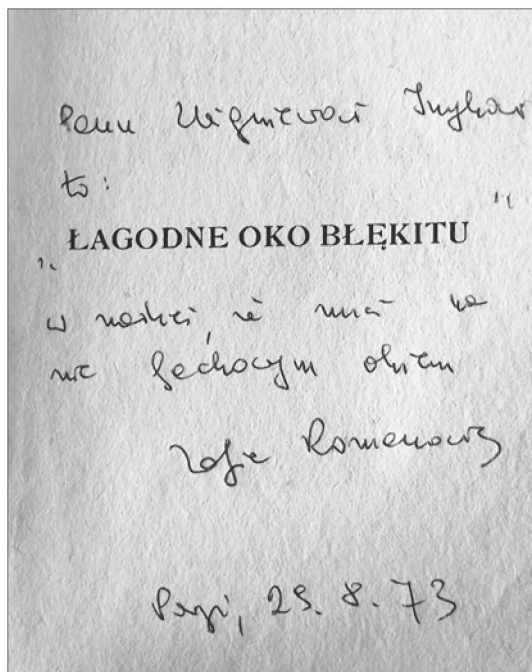 Panu Zbigniewowi
to:
"ŁAGODNE OKO BŁĘKITU"
w nadziei, że rzuci na
nie fachowym okiem
Zofia Romanowicz
Paryż, 29. 8. 73